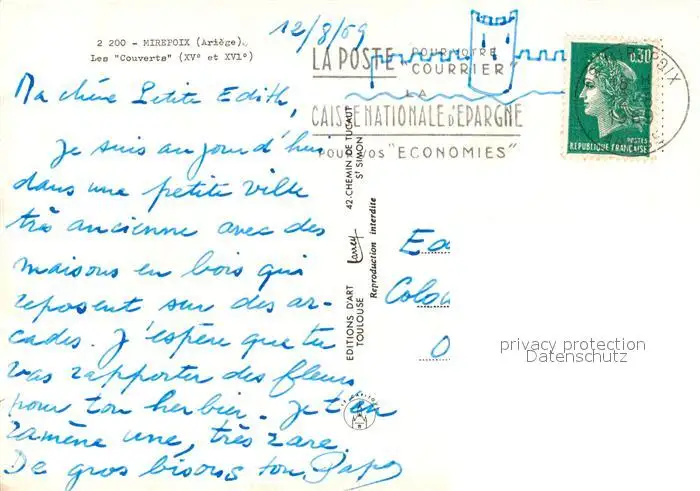 2 200 - MIREPOIX (Ariège).
Les "Couverts" (XV° et XVI°)
12/8/69
Ma chère Petite Edith,
Je suis aujourd'hui
dans une petite ville
très ancienne avec des
maisons en bois qui
reposent sur des ar-
cades. J'espère que tu
vas rapporter des fleurs
pour ton herbier. Je t'en
ramène une, très rare.
De gros bisous ton Papa
LA POSTE "POUR VOTRE COURRIER"
LA
CAISSE NATIONALE D'EPARGNE
POUR VOS "ECONOMIES"
0,30
POSTES
REPUBLIQUE FRANÇAISE
MIREPOIX
EDITIONS D'ART Larrey 42. CHEMIN DE TUCAUT
TOULOUSE ST SIMON
Reproduction interdite
Ed
Colo
privacy protection
Datenschutz